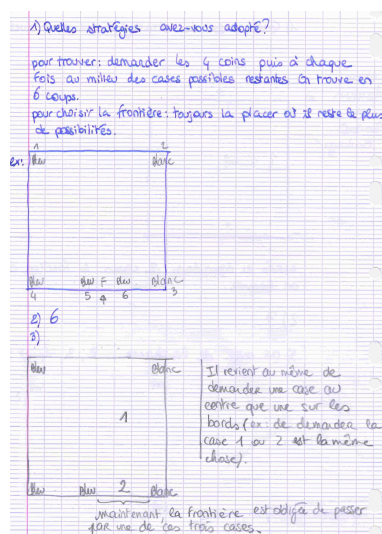 1) Quelles stratégies avez-vous adopté?
pour trouver: demander les 4 coins puis à chaque
fois au milieu des cases possibles restantes. On trouve en
6 coups.
pour choisir la frontière: toujours la placer où il reste le plus
de possibilités.
1 2
ex: Bleu Blanc
Bleu Bleu F Bleu Blanc
4 5 6 3
2) 6
3)
Bleu Blanc
1
Bleu Bleu 2 Blanc
Il revient au même de
demander une case au
centre que une sur les
bords (ex: de demander la
case 1 ou 2 est la même
chose).
maintenant, la frontière est obligée de passer
par une de ces trois cases.